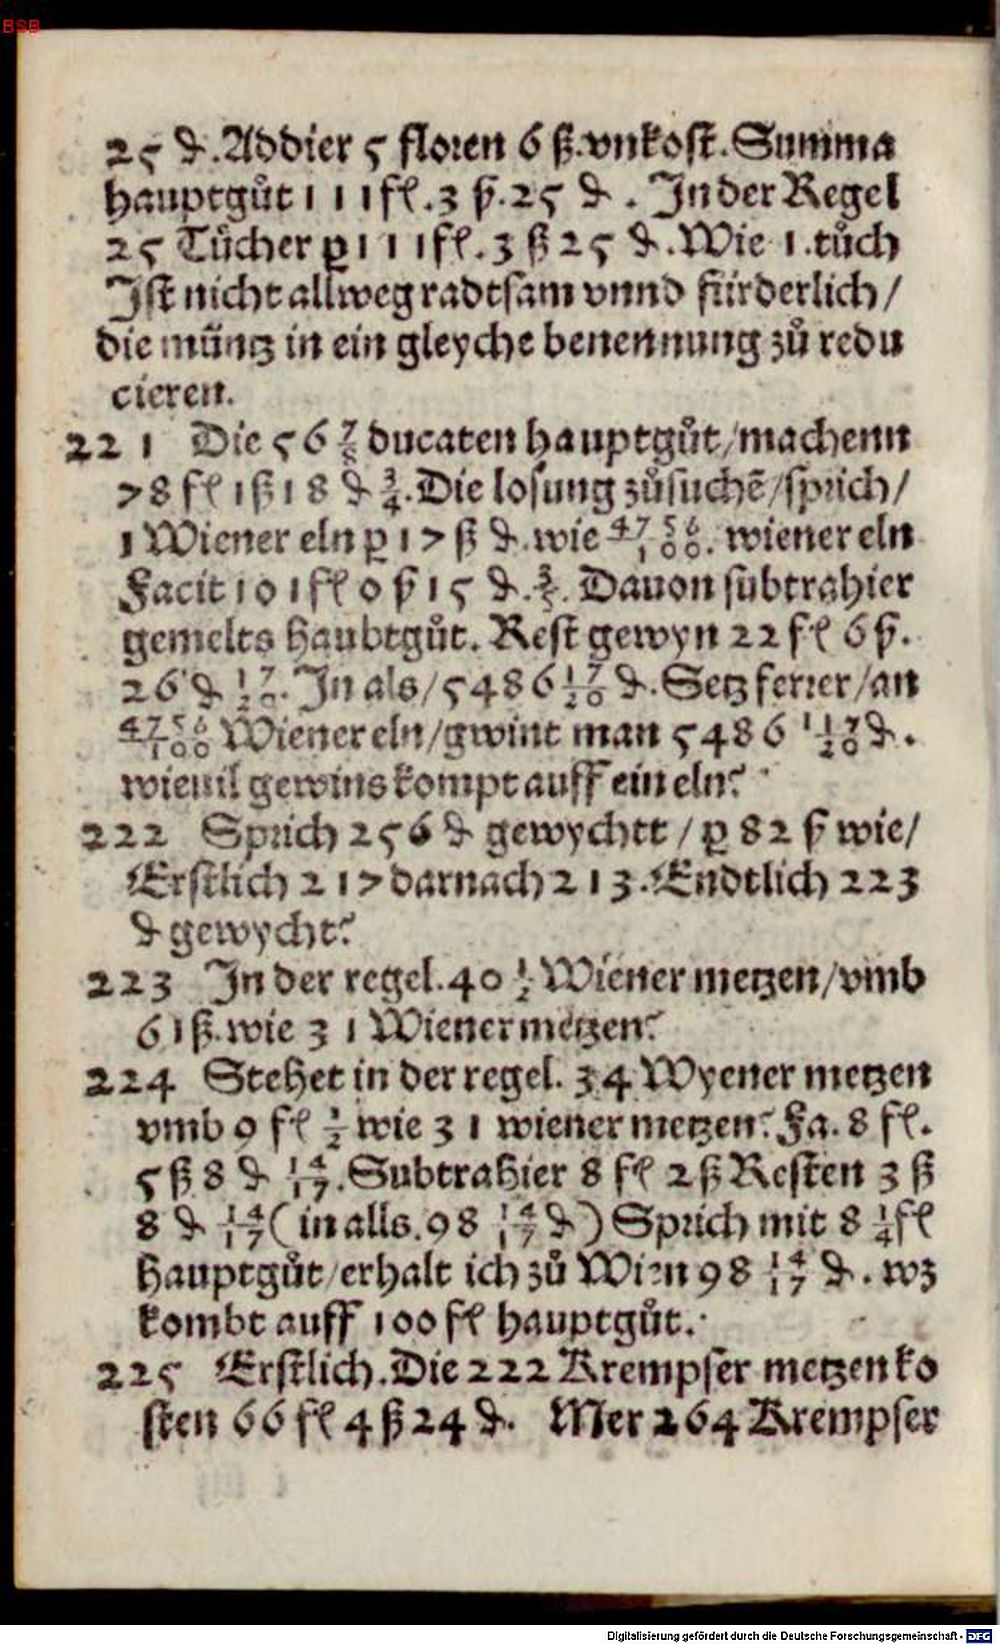 BSB
25 ₰. Addier 5 floren 6 ß. vnkost. Summa
hauptgůt 111fl. 3 ß. 25 ₰. In der Regel
25 Tůcher ꝑ 111fl. 3 ß 25 ₰. Wie 1. tůch
Ist nicht allweg radtsam vnnd fürderlich /
die müntz in ein gleyche benennung zů redu
cieren.
221 Die 56 7/8 ducaten hauptgůt / machenn
78 fl 1 ß 18 ₰ 3/4. Die losung zůsuchē / sprich /
1 Wiener eln ꝑ 17 ß ₰. wie 47 56/100. wiener eln
Facit 101 fl 0 ß 15 ₰. 3/5. Dauon subtrahier
gemelts haubtgůt. Rest gewyn 22 fl 6 ß.
26 ₰ 17/20. In als / 5486 17/20 ₰. Setz ferrer / an
47 56/100 Wiener eln / gwint man 5486 17/20 ₰.
wieuil gewins kompt auff ein eln?
222 Sprich 256 ₰ gewychtt / ꝑ 82 ß wie /
Erstlich 217 darnach 213. Endtlich 223
₰ gewycht?
223 In der regel. 40 1/2 Wiener metzen / vmb
61 ß. wie 31 Wiener metzen?
224 Stehet in der regel. 34 Wyener metzen
vmb 9 fl 1/2 wie 31 wiener metzen? Fa. 8 fl.
5 ß 8 ₰ 14/17. Subtrahier 8 fl 2 ß Resten 3 ß
8 ₰ 14/17 (in alls. 98 14/17 ₰) Sprich mit 8 1/4 fl
hauptgůt / erhalt ich zů Wien 98 14/17 ₰. wz
kombt auff 100 fl hauptgůt.
225 Erstlich. Die 222 Krempser metzen ko
sten 66 fl 4 ß 24 ₰. Mer 264 Krempser
Digitalisierung gefördert durch die Deutsche Forschungsgemeinschaft - DFG